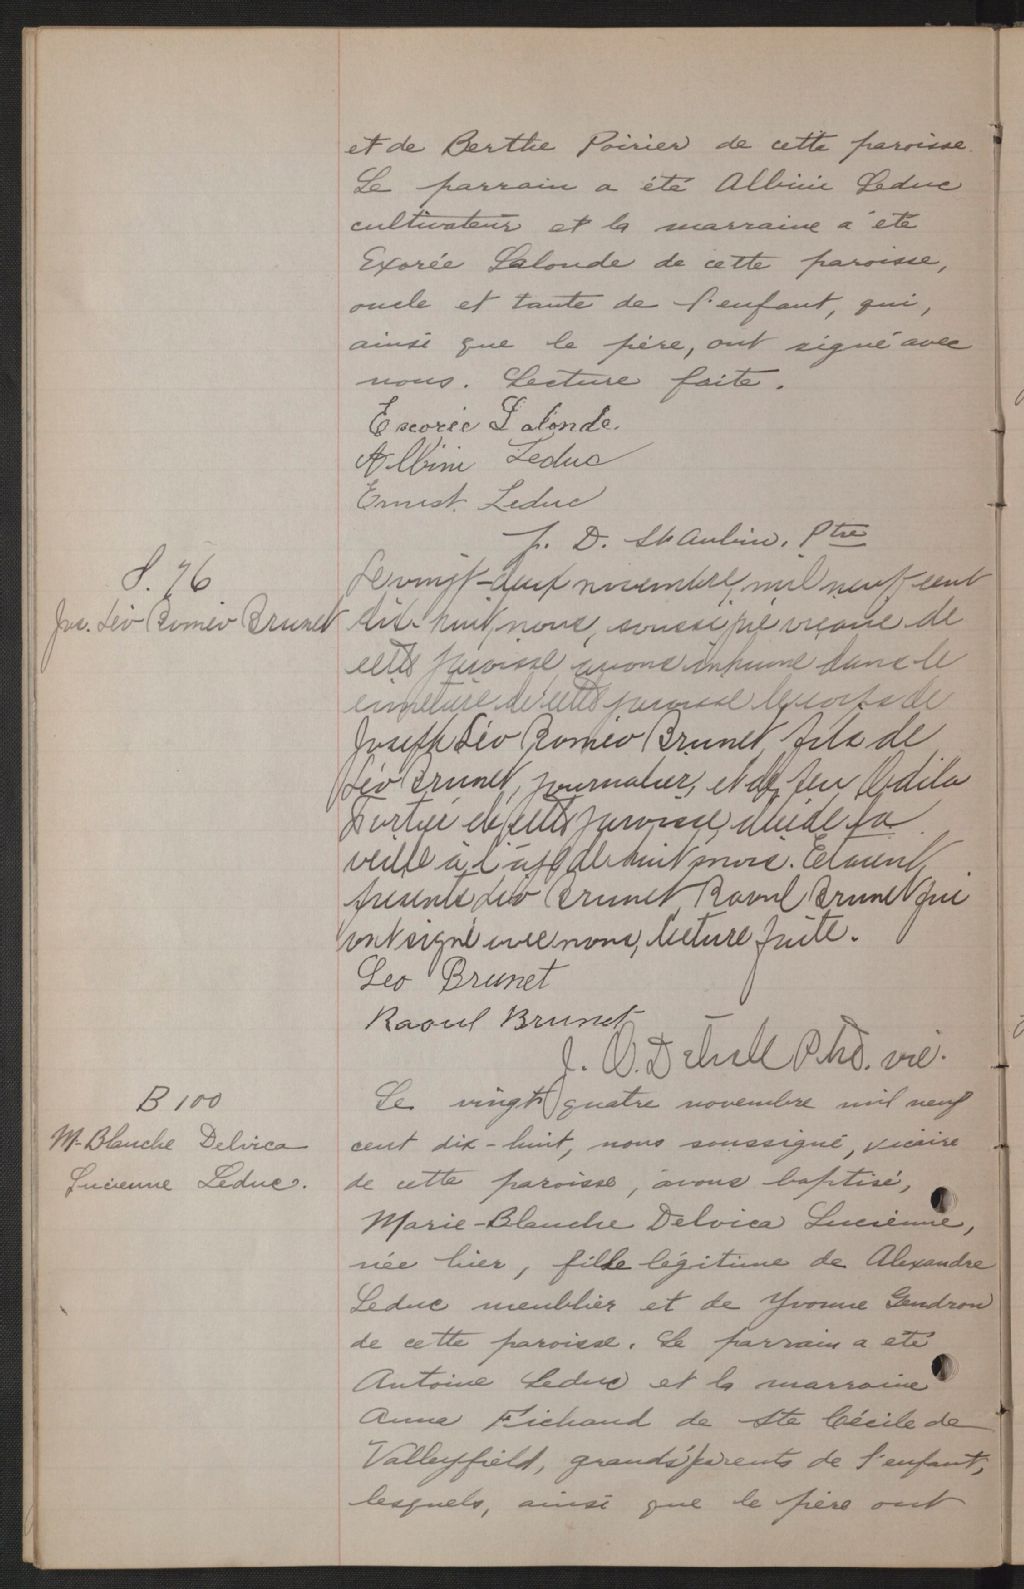 et de Berthe Poirier de cette paroisse.
Le parrain a été Albini Leduc
cultivateur et la marraine a été
Exorée Lalonde de cette paroisse,
oncle et tante de l'enfant, qui,
ainsi que le père, ont signé avec
nous. Lecture faite.
Exorée Lalonde.
Albini Leduc
Ernest Leduc
J. D. St Aubin, Ptre
S. 76
Jos. Léo Roméo Brunet
Le vingt-deux novembre, mil neuf cent
dix-huit, nous, soussigné vicaire de
cette paroisse avons inhumé dans le
cimetière de cette paroisse le corps de
Joseph Léo Roméo Brunet, fils de
Léo Brunet, journalier, et de feu Odila
de cette paroisse, décédé la
veille à l'âge de huit mois. Etaient
présents Léo Brunet, Raoul Brunet qui
ont signé avec nous, lecture faite.
Leo Brunet
Raoul Brunet
J. O. vic.
B 100
M-Blanche Delvica
Lucienne Leduc.
Le vingt quatre novembre mil neuf
cent dix-huit, nous soussigné, vicaire
de cette paroisse, avons baptisé,
Marie-Blanche Delvica Lucienne,
née hier, fille légitime de Alexandre
Leduc meublier et de Yvonne Gendron
de cette paroisse. Le parrain a été
Antoine Leduc et la marraine
Anna de Ste Cécile de
Valleyfield, grands parents de l'enfant,
lesquels, ainsi que le père ont